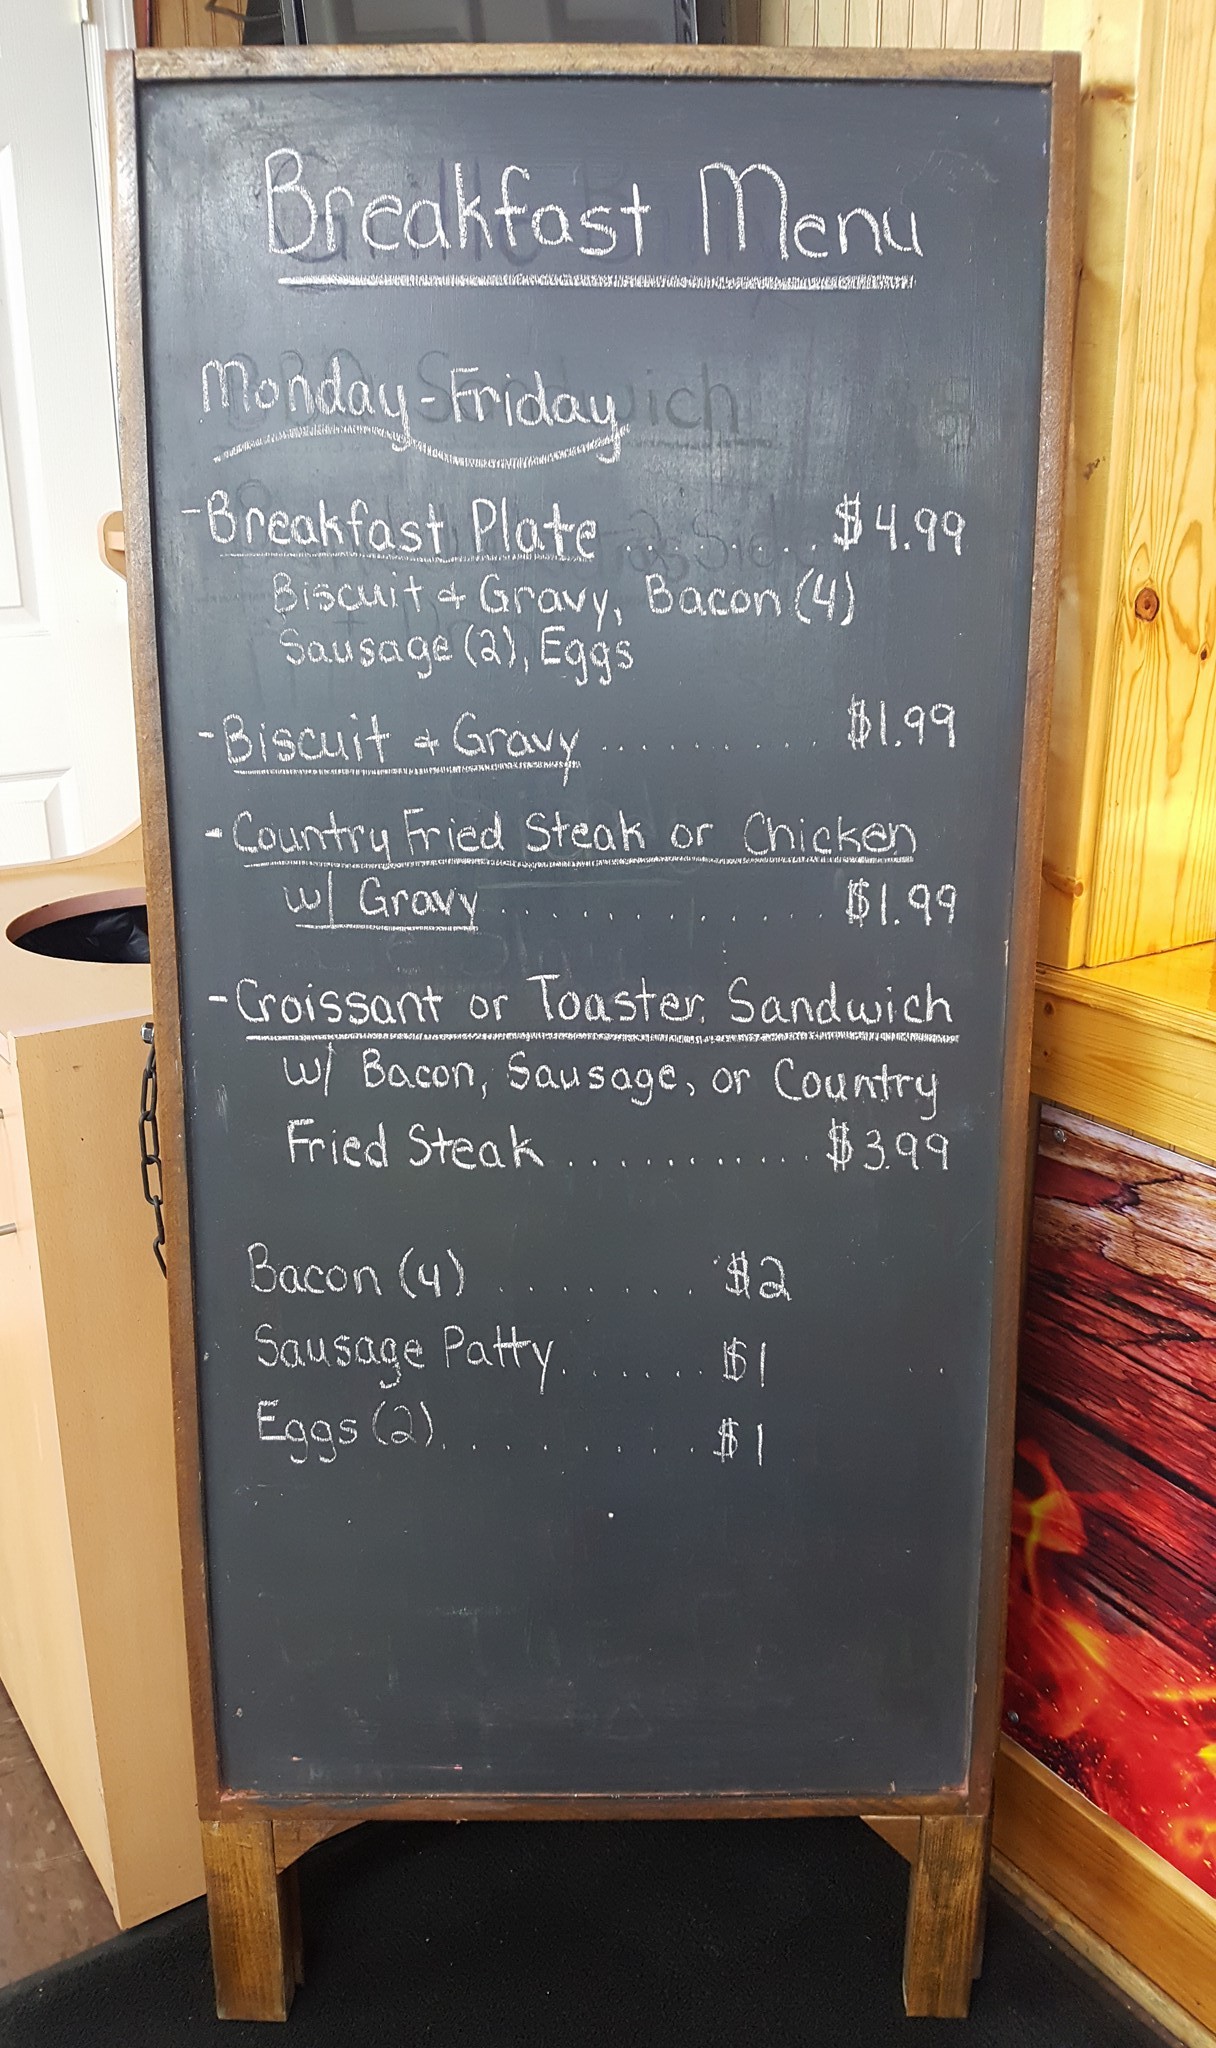 Breakfast Menu
Monday-Friday
- Breakfast Plate ........ $4.99
Biscuit & Gravy, Bacon (4)
Sausage (2), Eggs
- Biscuit & Gravy .......... $1.99
- Country Fried Steak or Chicken
w/ Gravy ............. $1.99
- Croissant or Toaster Sandwich
w/ Bacon, Sausage, or Country
Fried Steak ........... $3.99
Bacon (4) ........ $2
Sausage Patty ...... $1
Eggs (2) .......... $1